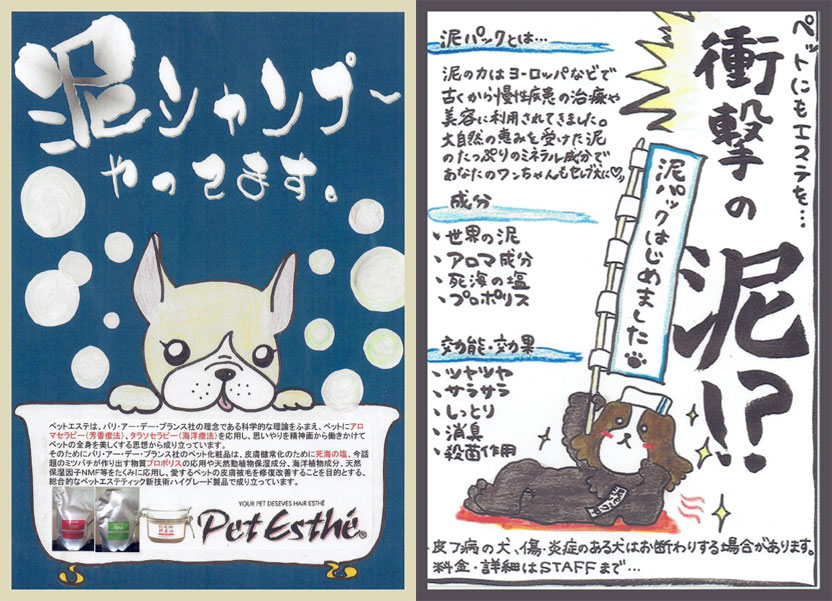 泥シャンプー
やってます。
ペットエステは、パリ・アー・デー・ブランス社の理念である科学的な理論をふまえ、ペットにアロ
マセラピー(芳香療法)、タラソセラピー(海洋療法)を応用し、思いやりを精神面から働きかけて
ペットの全身を美しくする思想から成り立っています。
そのためにパリ・アー・デー・ブランス社のペット化粧品は、皮膚健常化のために死海の塩、今話
題のミツバチが作り出す物質プロポリスの応用や天然動植物保湿成分、海洋植物成分、天然
保湿因子NMF等をたくみに応用し、愛するペットの皮膚被毛を修復改善することを目的とする、
総合的なペットエステティック新技術ハイグレード製品で成り立っています。
YOUR PET DESEVES HAIR ESTHÉ
Pet Esthé®
ペットにもエステを…
衝撃の
泥!?
泥パックとは…
泥の力はヨーロッパなどで
古くから慢性疾患の治療や
美容に利用されてきました。
大自然の恵みを受けた泥
のたっぷりのミネラル成分で
あなたのワンちゃんもセレブ犬に♡
成分
・世界の泥
・アロマ成分
・死海の塩
・プロポリス
効能・効果
・ツヤツヤ
・サラサラ
・しっとり
・消臭
・殺菌作用
泥パックはじめました
・皮フ病の犬、傷・炎症のある犬はお断わりする場合があります。
料金・詳細はSTAFFまで…